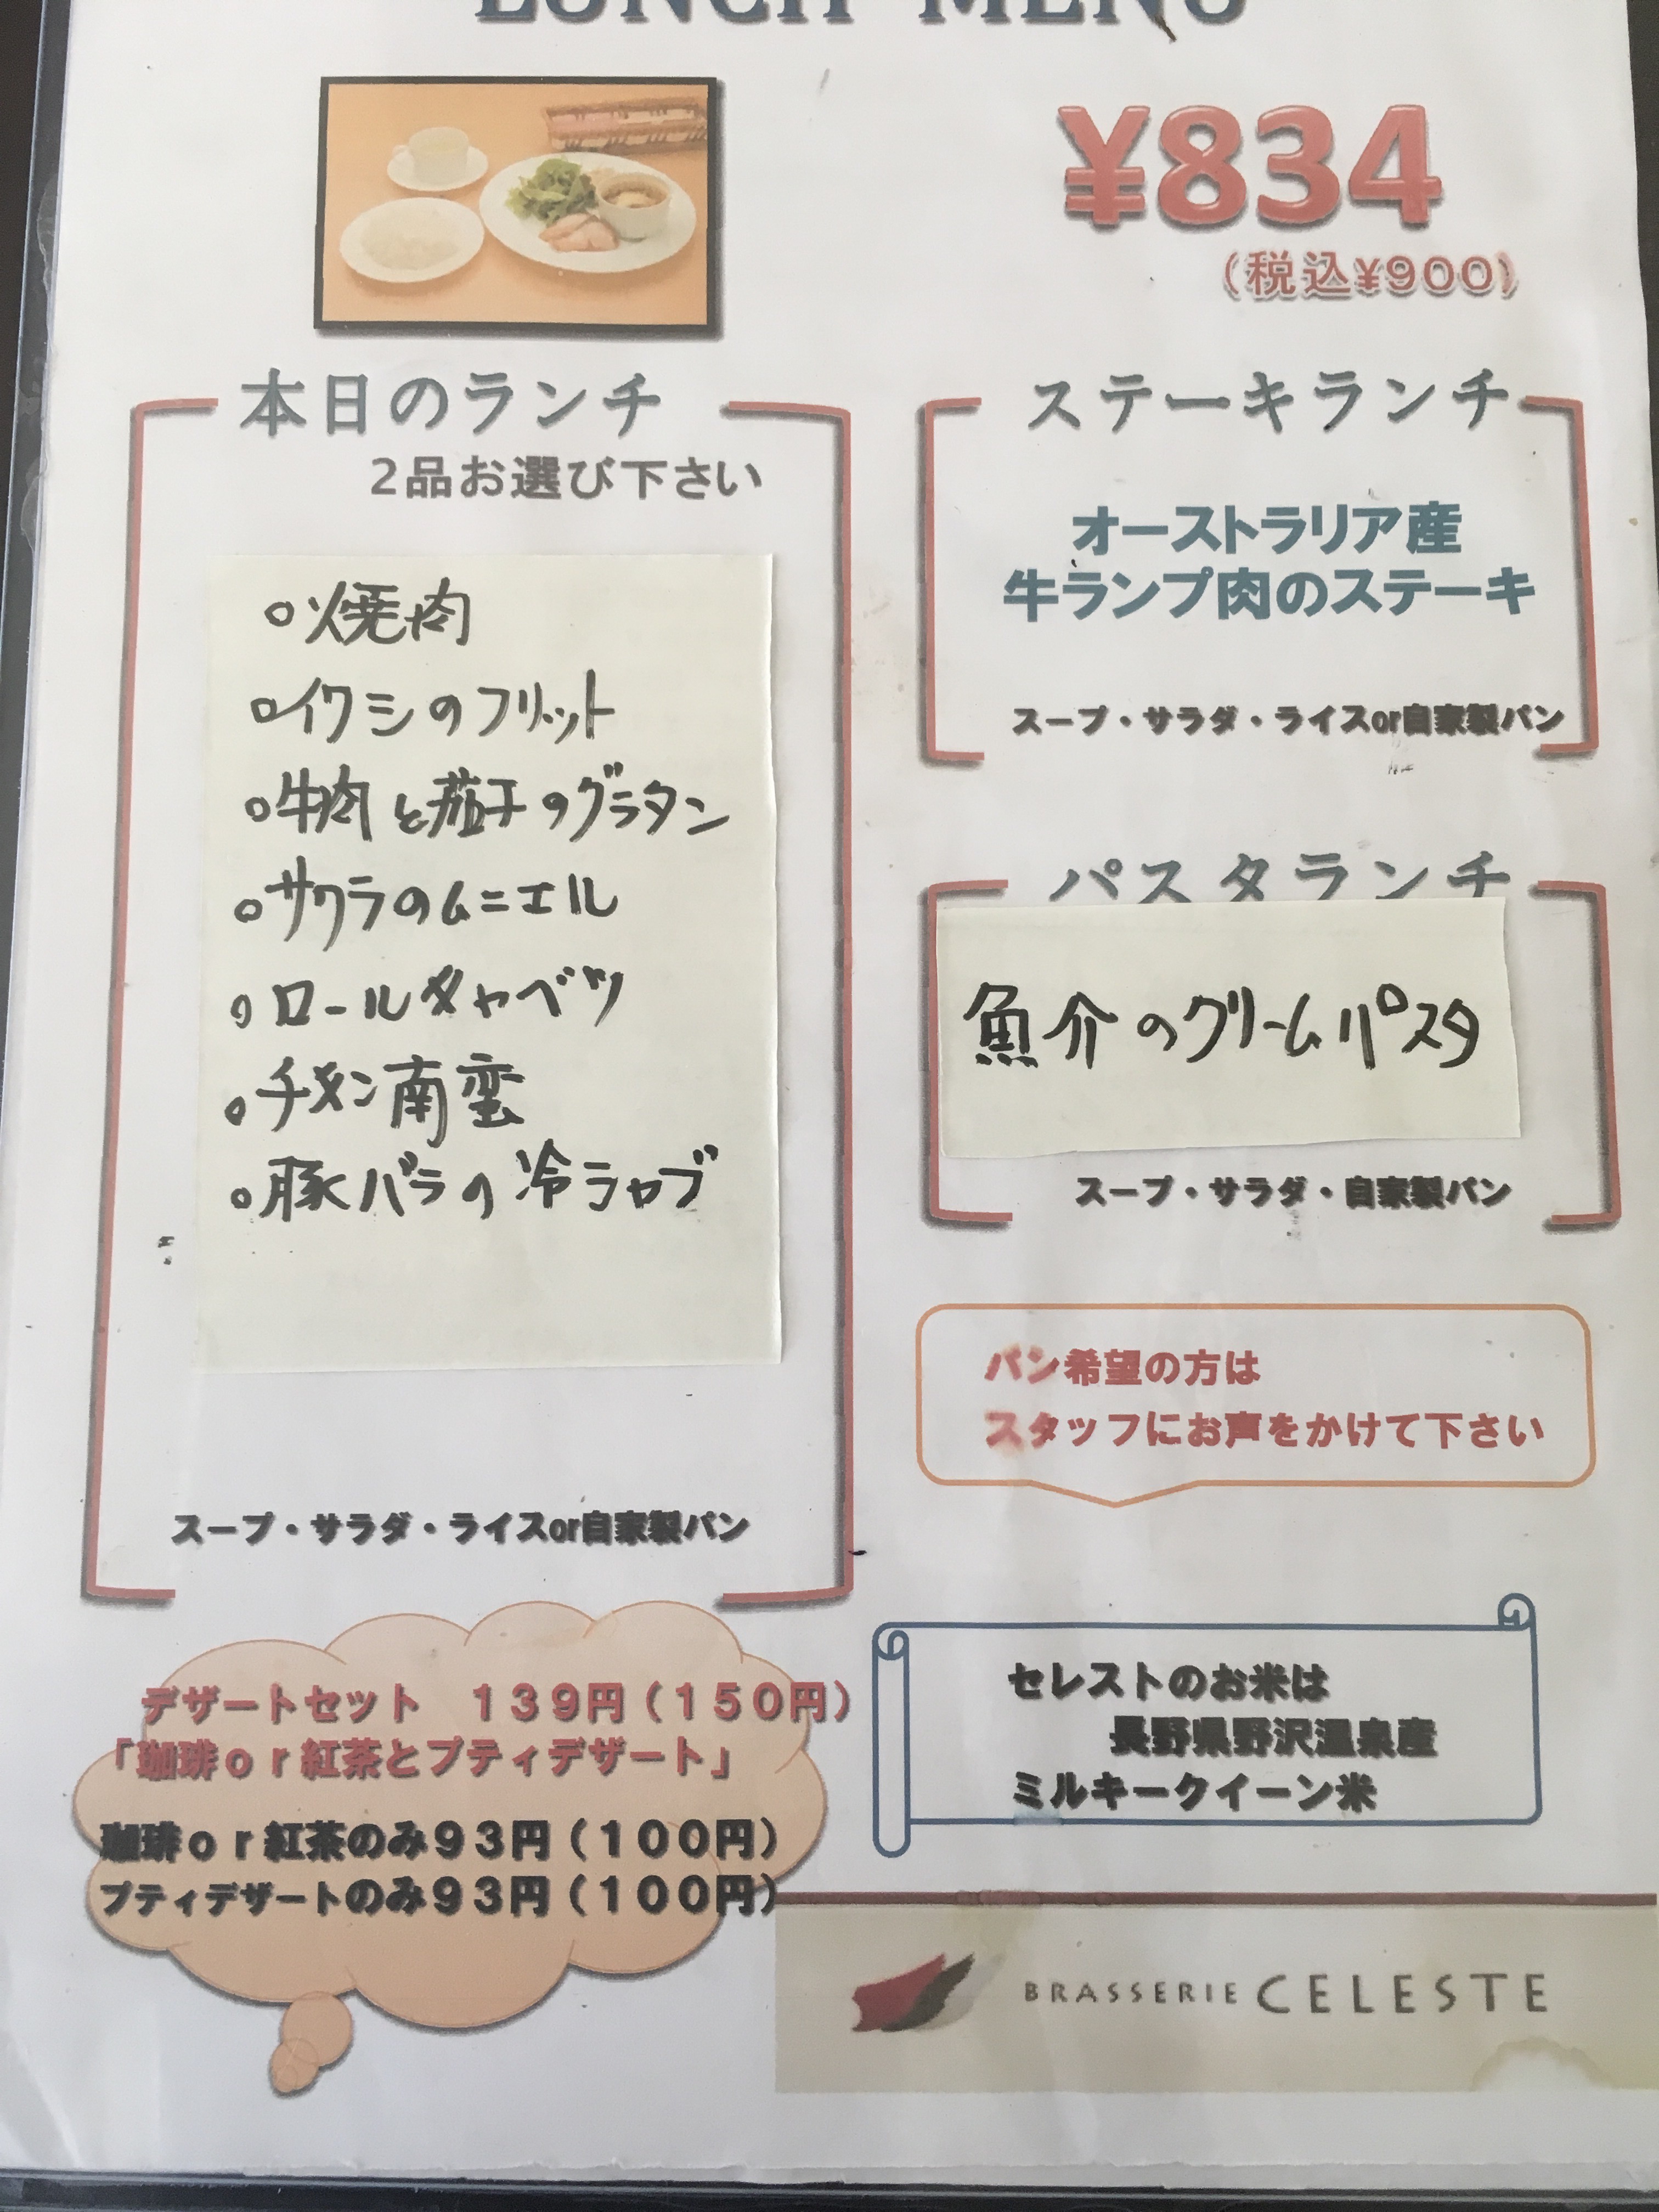 LUNCH MENU
¥834
(税込¥900)
本日のランチ
2品お選び下さい
○焼肉
○イワシのフリット
○牛肉と茄子のグラタン
○サワラのムニエル
○ロールキャベツ
○チキン南蛮
○豚バラの冷シャブ
スープ・サラダ・ライスor自家製パン
ステーキランチ
オーストラリア産
牛ランプ肉のステーキ
スープ・サラダ・ライスor自家製パン
パスタランチ
魚介のクリームパスタ
スープ・サラダ・自家製パン
パン希望の方は
スタッフにお声をかけて下さい
デザートセット　１３９円（１５０円）
「珈琲ｏｒ紅茶とプティデザート」
珈琲ｏｒ紅茶のみ９３円（１００円）
プティデザートのみ９３円（１００円）
セレストのお米は
長野県野沢温泉産
ミルキークイーン米
BRASSERIE CELESTE